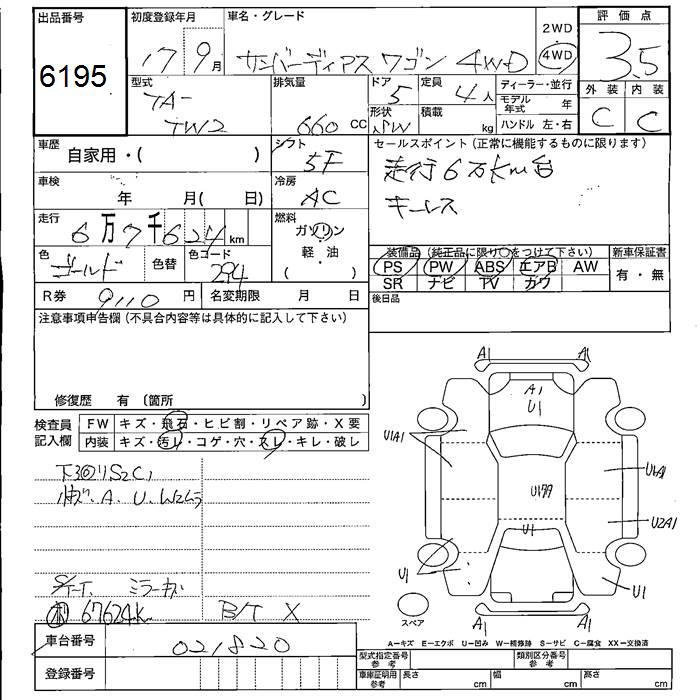 出品番号
6195
初度登録年月
17 9月
車名・グレード
サンバーディアス ワゴン 4WD
2WD
4WD
評価点
3.5
外装 内装
C C
型式
TA-
TW2
排気量
660 CC
ドア
5
形状
定員
4人
積載
kg
ディーラー・並行
モデル年式 年
ハンドル 左・右
車歴
自家用・( )
シフト
5F
車検
年 月( 日)
冷房
AC
走行
6万7千624km
燃料
ガソリン
軽・油
( )
色
ゴールド
色替
色コード
294
R券 9110 円
名変期限 月 日
セールスポイント(正常に機能するものに限ります)
走行6万km台
キーレス
装備品(純正品に限り○をつけて下さい)
PS PW ABS エアB AW
SR ナビ TV カワ
新車保証書
有・無
後日品
注意事項申告欄(不具合内容等は具体的に記入して下さい)
修復歴 有(箇所 )
検査員
記入欄
FW キズ・飛石・ヒビ割・リペア跡・X要
内装 キズ・汚れ・コゲ・穴・スレ・キレ・破レ
下回りS2C1
A.U.W2ムラ
ミラーキズ
67624K B/T X
車台番号
021820
登録番号
A1 A1
A1
U1
U1A1
U1A1
U1
U2A1
U1
U1
A1 A1
スペア
A─キズ E─エクボ U─凹み W─補修跡 S─サビ C─腐食 XX─交換済
型式指定番号
参考
類別区分番号
参考
車庫証明用
参考
長さ cm
幅 cm
高さ cm